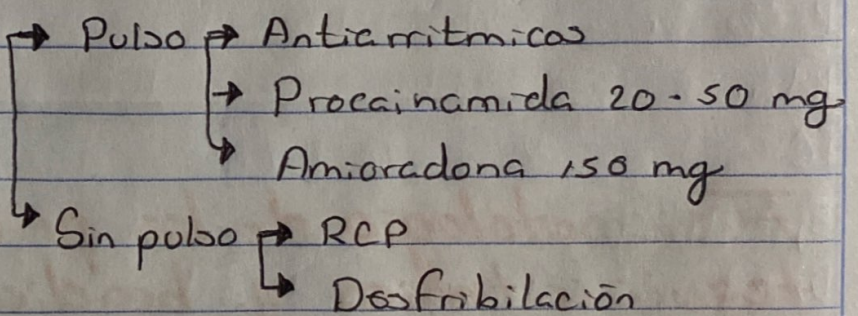 → Pulso → Antiarritmicos
→ Procainamida 20 - 50 mg
→ Amioradona 150 mg
→ Sin pulso → RCP
→ Desfribilación